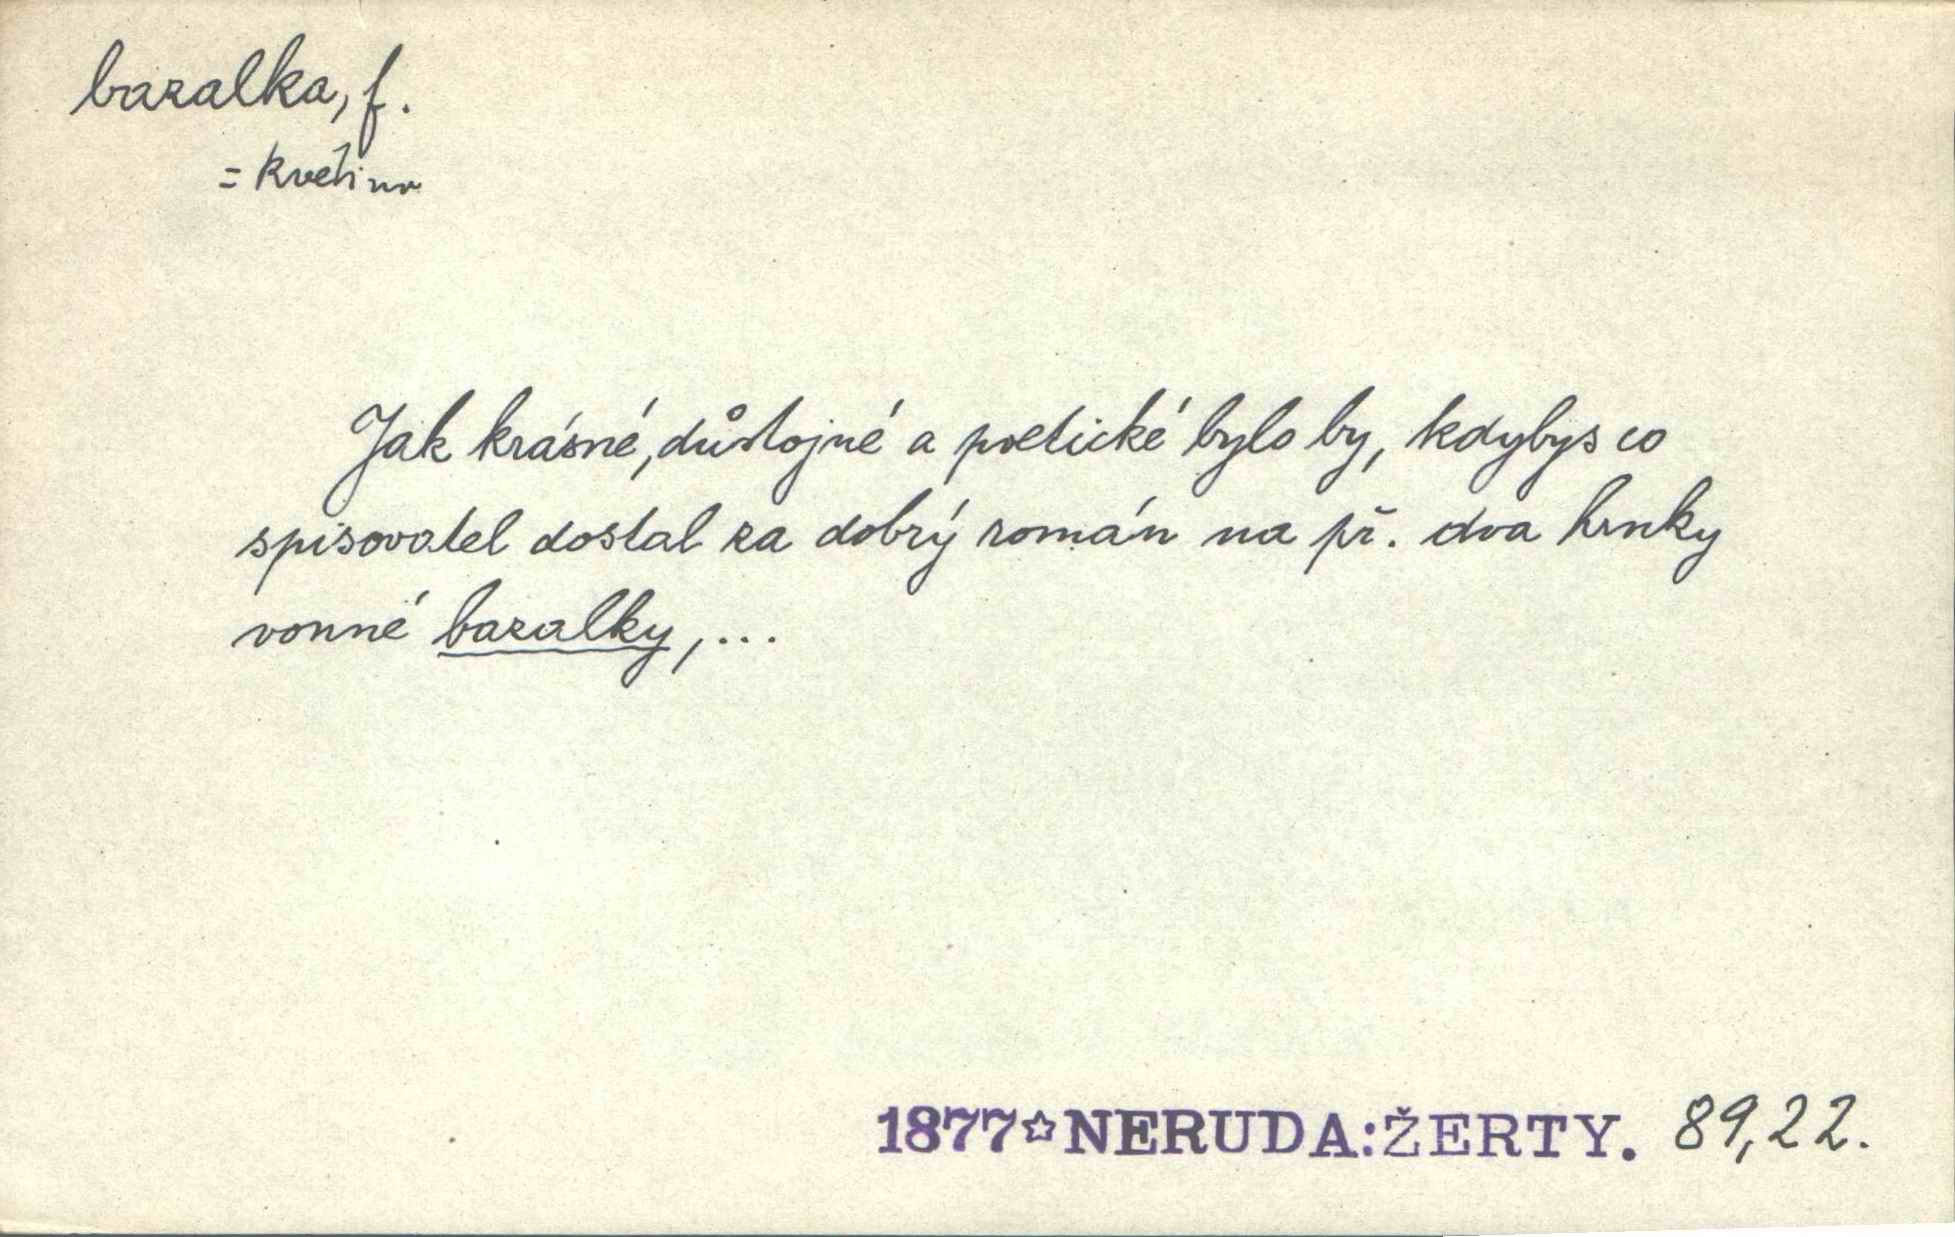 bazalka, f.
= květina
Jak krásné, důstojné a poetické bylo by, kdybys co
spisovatel dostal za dobrý román na př. dva hrnky
vonné bazalky, ...
1877☆NERUDA:ŽERTY. 89,22.